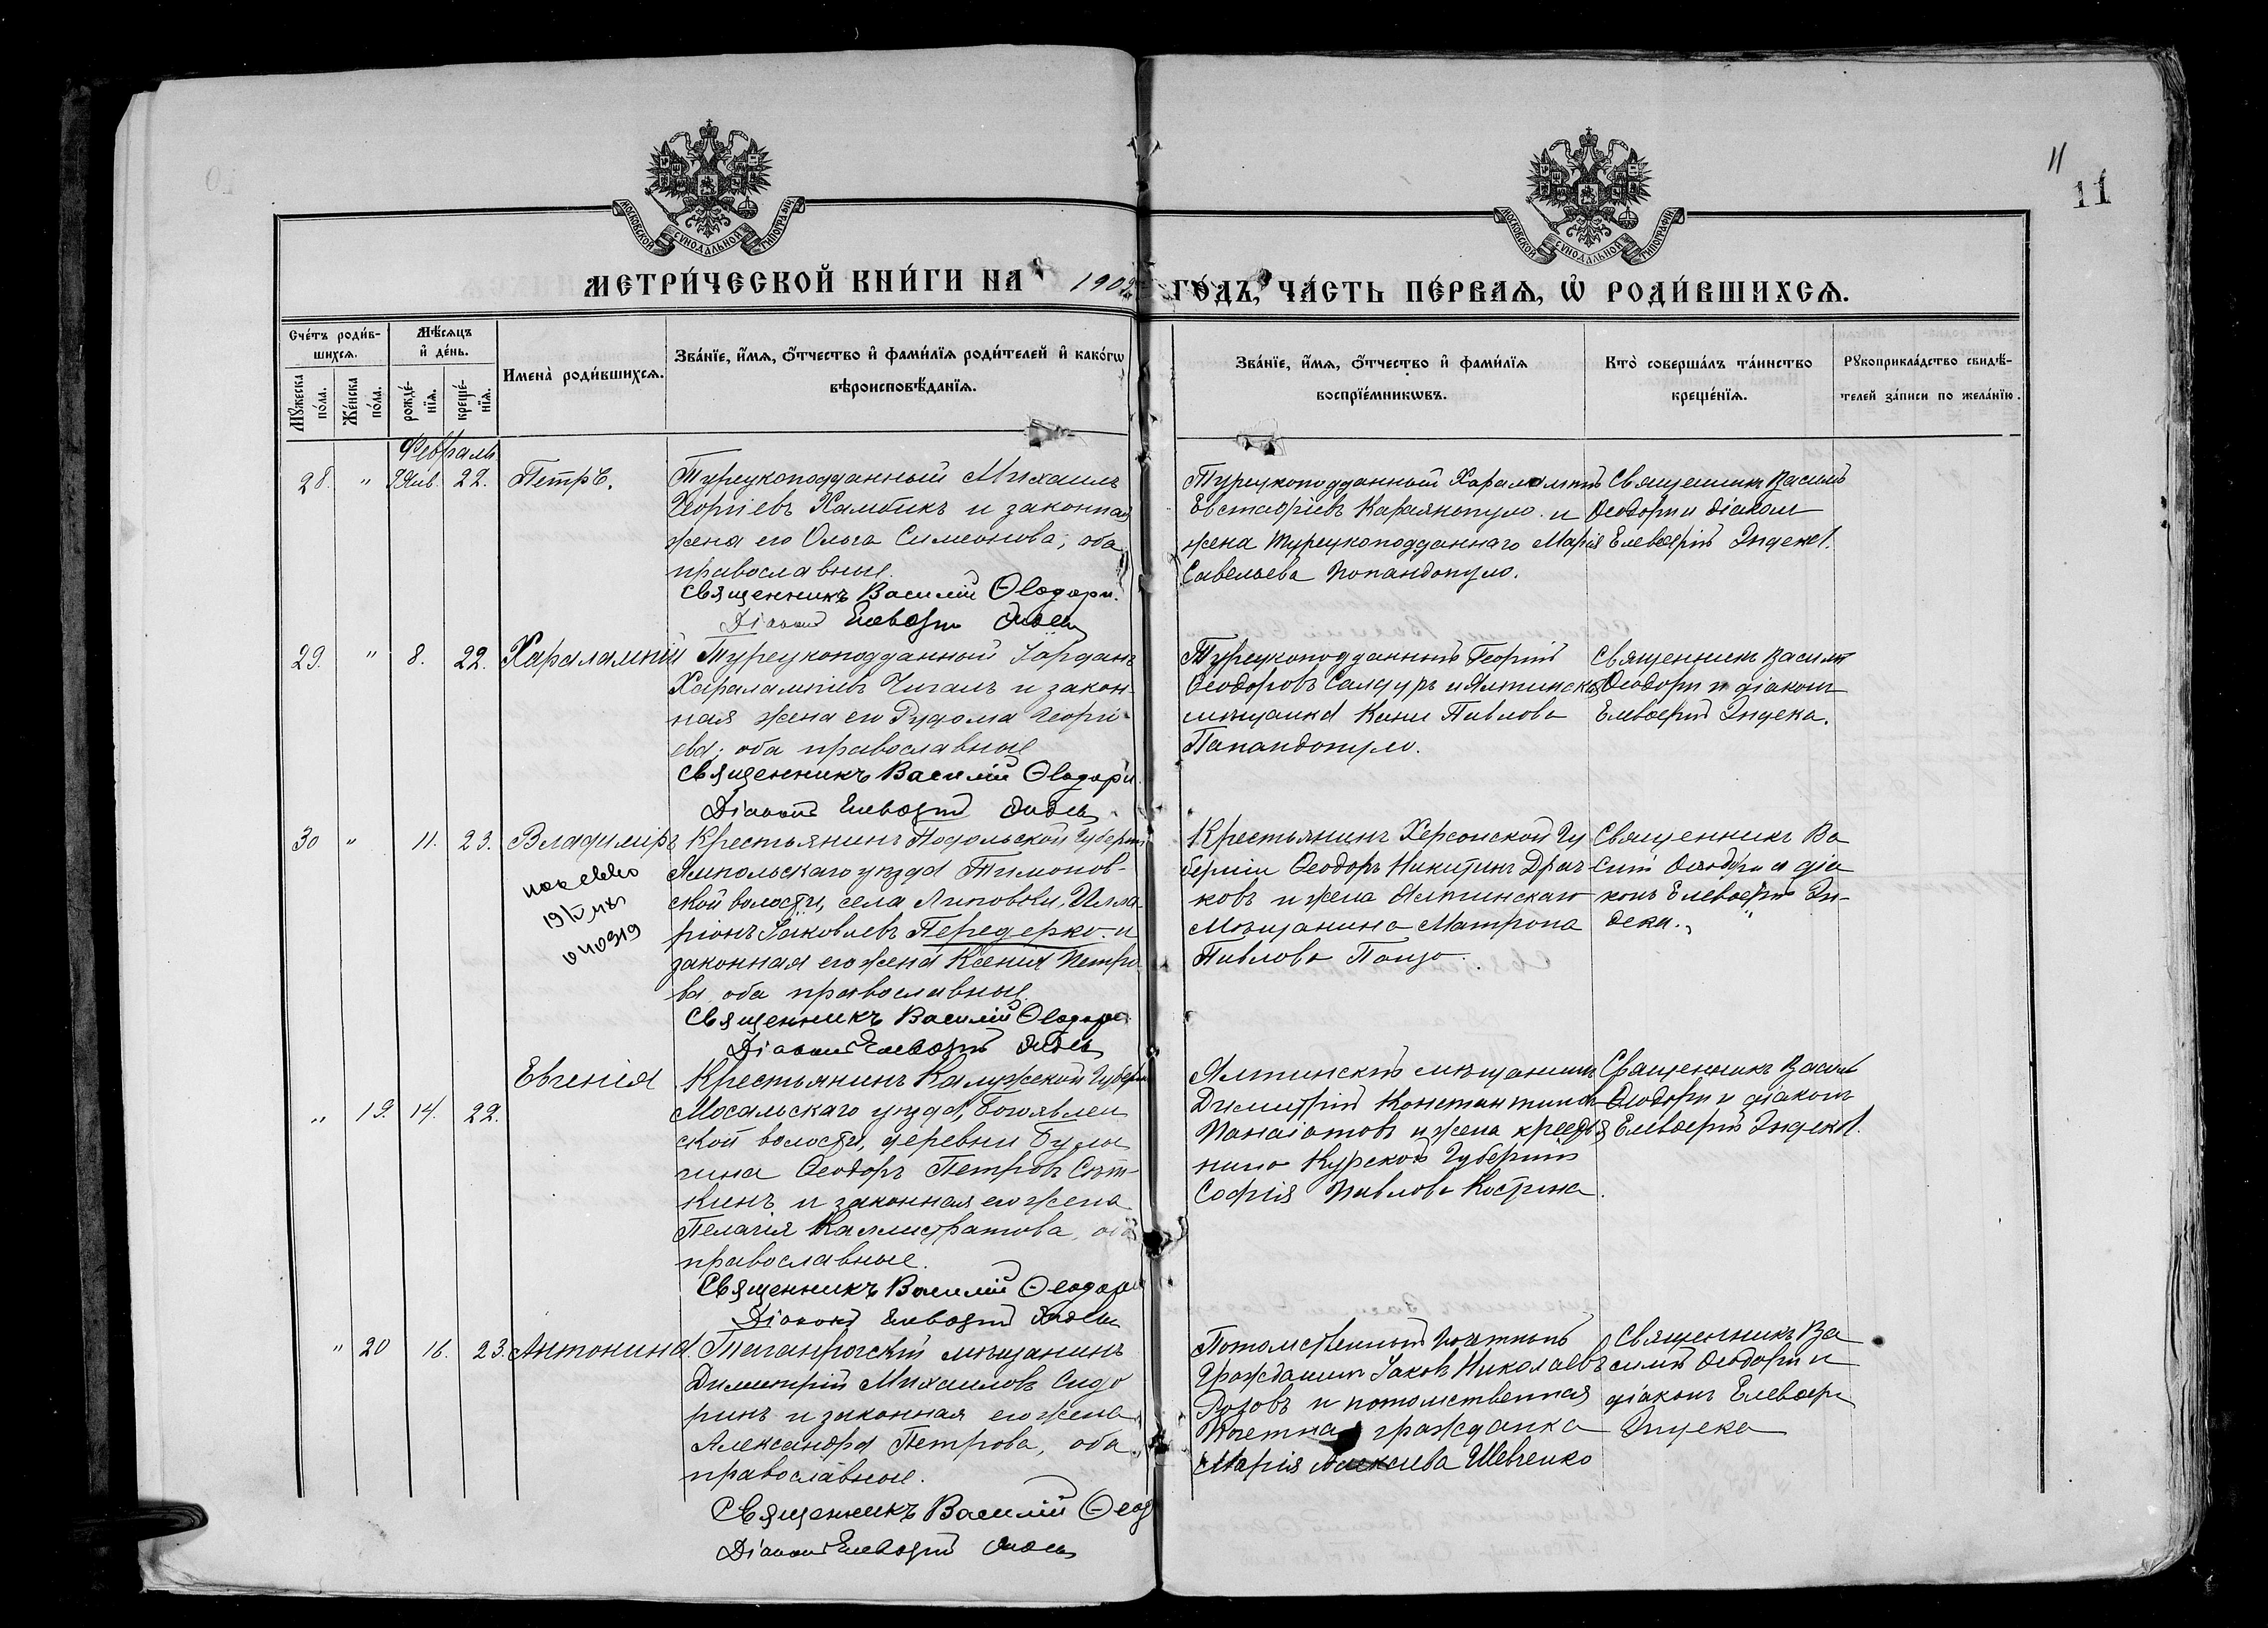 11
11
МОСКОВСКОЙ СѴНОДАЛЬНОЙ ТИПОГРАФІИ
МОСКОВСКОЙ СѴНОДАЛЬНОЙ ТИПОГРАФІИ
МЕТРИ́ЧЕСКОЙ КНИ́ГИ НА 1902 ГО́ДЪ, ЧА́СТЬ ПЕ́РВАѦ, Ѡ҆ РОДИ́ВШИХСѦ.
Сче́тъ роди́в-
шихсѧ.
Мѣ́сѧцъ
и҆ де́нь.
Мꙋ́жеска
по́ла.
Же́нска
по́ла.
рожде́-
нїѧ.
креще́-
нїѧ.
Имена̀ роди́вшихсѧ.
Зва́нїе, и҆́мѧ, ѻ҆́тчество и҆ фами́лїѧ роди́телей и҆ како́гѡ
вѣроисповѣ́данїѧ.
Зва́нїе, и҆́мѧ, ѻ҆́тчество и҆ фами́лїѧ
воспрїе́мникѡвъ.
Кто̀ соверша́лъ та́инство
креще́нїѧ.
Рꙋкоприкла́дство свидѣ́-
телей за́писи по жела́нїю.
Февраль
28. " 9 Янв. 22. Петръ.
Турецкоподданный Михаилъ
Георгіевъ Хамбикъ и законная
жена его Ольга Симеонова, оба
православные.
Священникъ Василій Ѳеодори.
Діаконъ Елевѳерій
Турецкоподданный Харалампій
Евстафіевъ Караянопуло и
жена турецкоподданнаго Марія
Савельева Попандопуло.
Священникъ Василій
Ѳеодори и діаконъ
Елевѳерій Индека.
29. " 8. 22. Харалампій
Турецкоподданный Іорданъ
Харалампіевъ Чигалъ и закон-
ная жена его Георгі-
ева; оба православные
Священникъ Василій Ѳеодори.
Діаконъ Елевѳерій
Турецкоподданный Георгій
Ѳеодоровъ и Ялтинская
мѣщанка Павлова
Папандопуло.
Священникъ Василій
Ѳеодори и діаконъ
Елевѳерій Индека.
30 " 11. 23. Владиміръ
19
040919
Крестьянинъ Подольской Губерніи
Ямпольскаго уѣзда Тимонов-
ской волости, села Липовки, Илла-
ріонъ Іаковлевъ Передерко и
законная его жена Ксенія Петро
ва оба православные.
Священникъ Василій Ѳеодори
Діаконъ Елевѳерій
Крестьянинъ Херсонской Гу
берніи Ѳеодоръ Никитинъ Драч-
ковъ и жена Ялтинскаго
Мѣщанина Матрона
Павлова
Священникъ Ва
силій Ѳеодори и діа
конъ Елевѳерій Ин-
дека.
Евгенія
" 19. 14. 22.
Крестьянинъ Калужской Губерн
Мосальскаго уѣзда, Богоявлен
ской волости, деревни Булы
гина Ѳеодоръ Петровъ Сѣт-
кинъ и законная его жена
Пелагія Каллистратова, оба
православные.
Священникъ Василій Ѳеодори
Діаконъ Елевѳерій
Ялтинскій мѣщанинъ
Димитрій Константиновъ
Панаіотовъ и жена крестья
нина Курской Губерніи
Софія Павлова Кострина.
Священникъ Василій
Ѳеодори и діаконъ
Елевѳерій Индека.
" 20 16. 23. Антонина.
Таганрогскій мѣщанинъ
Димитрій Михаиловъ Сидо
ринъ и законная его жена
Александра Петрова, оба
православные.
Священникъ Василій Ѳеод
Діаконъ Елевѳерій
Потомственный Почетный
Гражданинъ Іаковъ Николаевъ
Розовъ и потомственная
Почетная гражданка
Марія Алексѣева Шевченко
Священникъ Ва
силій Ѳеодори и
діаконъ Елевѳерій
Индека